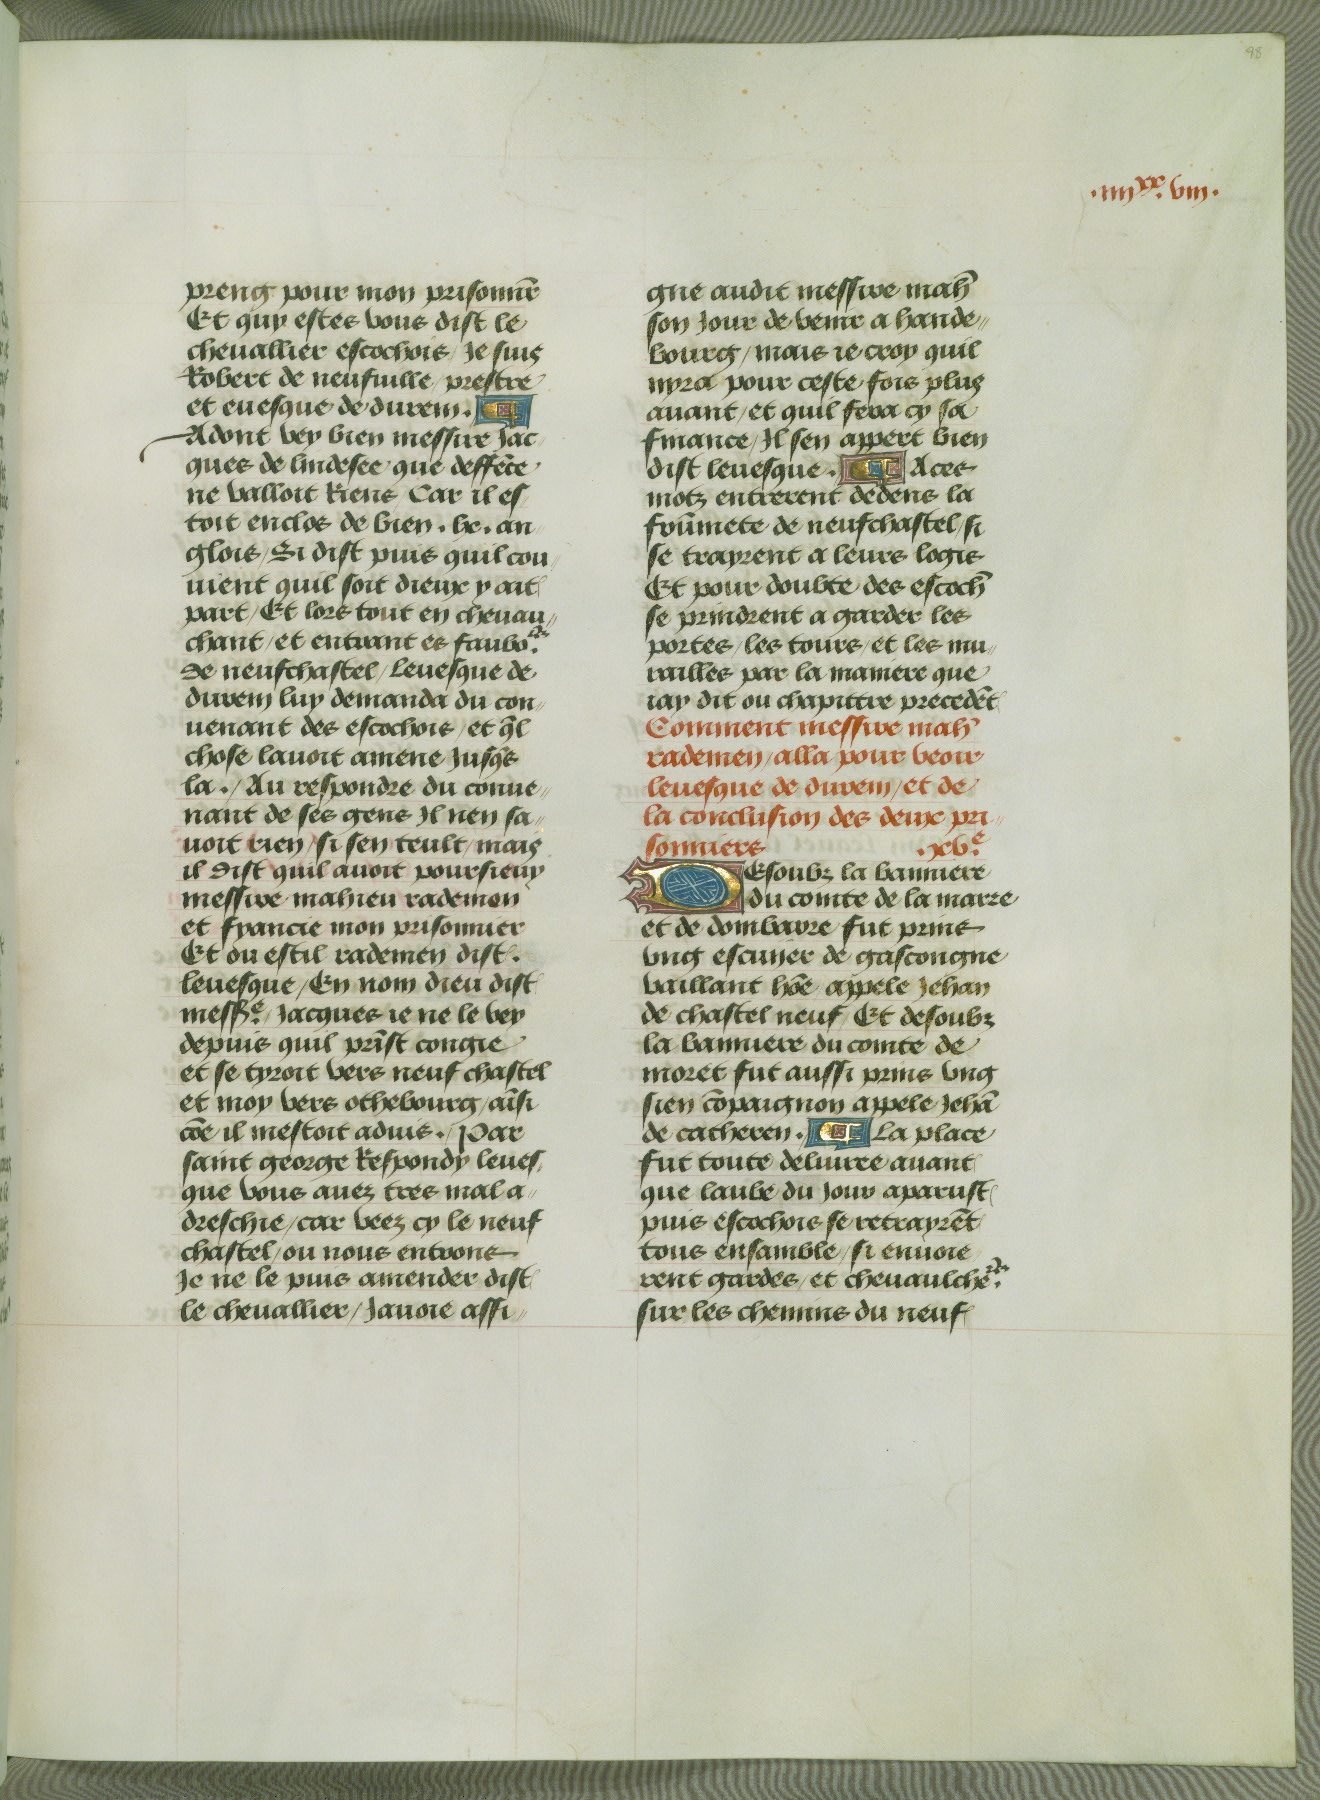 98
·iiii^xx. viii·
preng pour mon prisonnr̄
Et quy estes vous dist le
cheuallier escochois / Je suis
Robert de neufuille prestre
et euesque de durem. ¶
Adont vey bien messire Jac
ques de lindesee que deffēce
ne valloit Riens Car il es
toit enclos de bien .vc. an
glois / Si dist puis quil cou
uient quil soit dieux y ait
part / Et lors tout en cheuau〃
chant / et entrant es faubo^rgs.
de neufchastel / leuesque de
durem luy demanda du con
uenant des escochois / et q̄l
chose lauoit amene Jusq̄s
la ./ Au respondre du conue〃
nant de ses gens Il nen sa〃
uoit rien / si sen teult / mais
il dist quil auoit poursieuy
messire mahieu rademen
et fyancie mon prisonnier
Et ou estil rademen dist.
leuesque / En nom dieu dist
mess^re. Jacques ie ne le vey
depuis quil prīst congie
et se tyroit vers neuf chastel
et moy vers othebourg / aīsi
cōe il mestoit aduis ./ Par
saint george Respondy leues
que vous auez tres mal a〃
dreschie / car veez cy le neuf
chastel / ou nous entrons
Je ne le puis amender dist
le cheuallier / Jauoie assi〃
gne audit messire mah̄
son Jour de venir a hande〃
bourg / mais ie croy quil
nyra pour ceste fois plus
auant / et quil fera cy sa
finance / Il sen appert bien
dist leuesque. ¶ A ces
motz entrerent dedens la
frūmete de neufchastel / si
se trayrent a leurs logis
Et pour doubte des escoch̄
se prindrent a garder les
portes / les tours / et les mu〃
railles par la maniere que
iay dit ou chapittre precedēt
Comment messire mah̄
rademen / alla pour veoir
leuesque de durem / et de
la conclusion des deux pri〃
sonniers .xv^e.
Desoubz la banniere
du comte de la marre
et de dombarre fut prins
vng escuyer de gascongne
vaillant hōe appele Jehan
de chastel neuf / Et desoubz
la banniere du comte de
moret fut aussi prins vng
sien cōpaignon appele Jehā
de catheren. ¶ La place
fut toute deliuree auant
que laube du Jour aparust
puis escochois se retrayrēt
tous ensamble / si enuoie
rent gardes / et cheuaulche^rs.
sur les chemins du neuf